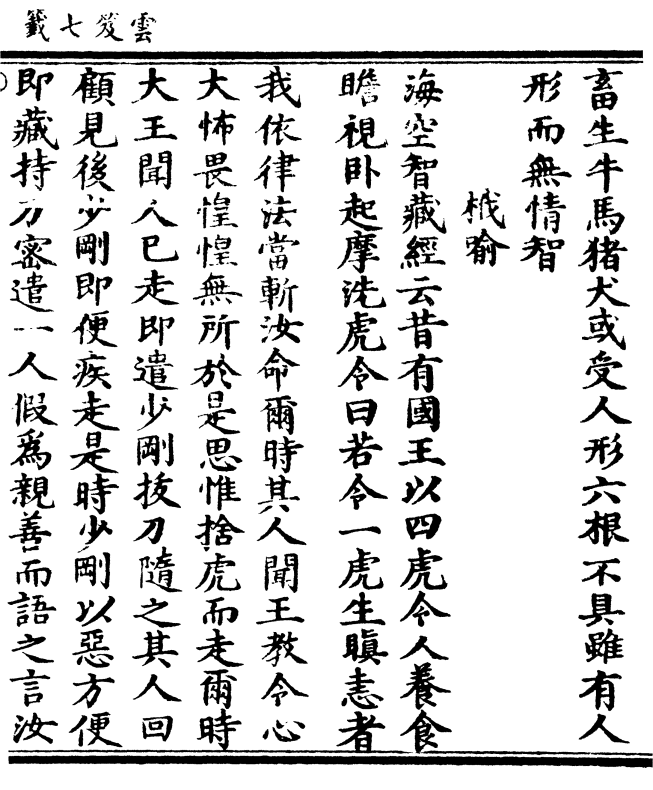 雲笈七籤
畜生牛馬猪犬或受人形六根不具雖有人
形而無情智
栰喻
海空智藏經云昔有國王以四虎令人養食
瞻視卧起摩洗虎令曰若令一虎生瞋恚者
我依律法當斬汝命爾時其人聞王教令心
大怖畏惶惶無所於是思惟捨虎而走爾時
大王聞人已走即遣少剛拔刀隨之其人回
顧見後少剛即便疾走是時少剛以惡方便
即藏持刀密遣一人假爲親善而語之言汝